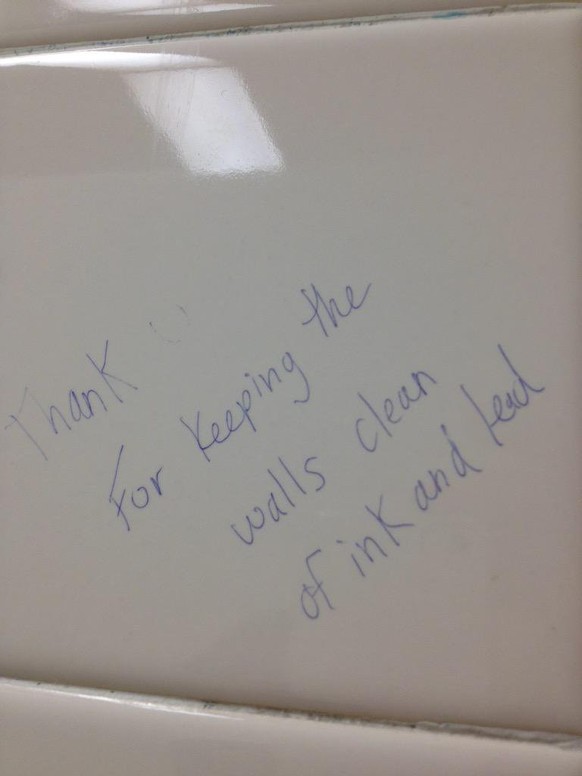 Thank
For Keeping the
walls clean
of ink and lead